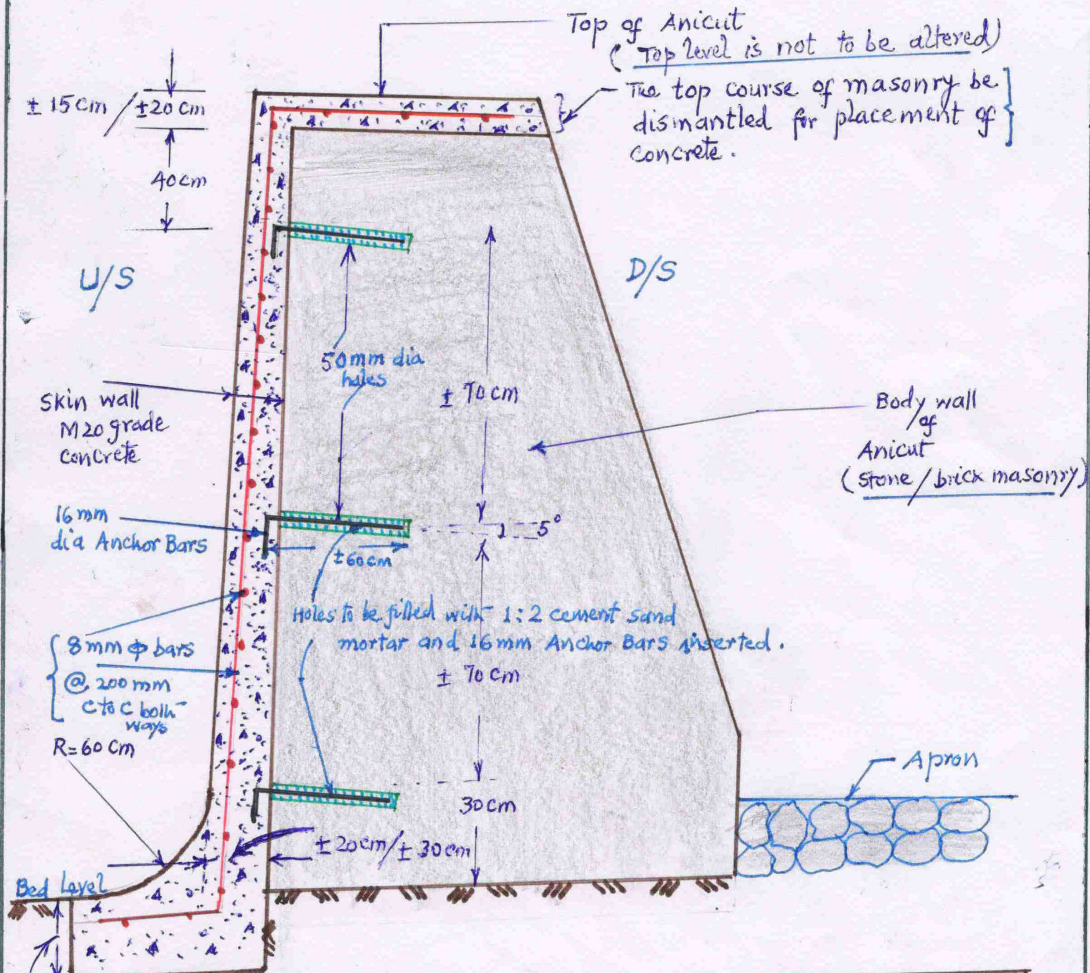 Top of Anicut
( Top level is not to be altered)
The top course of masonry be
dismantled for placement of
concrete.
± 15cm / ±20cm
40cm
U/S
D/S
50mm dia
holes
± 70cm
Skin wall
M20 grade
concrete
Body wall
of
Anicut
(stone/brick masonry)
16mm
dia Anchor Bars
5°
±60cm
Holes to be filled with 1:2 cement sand
mortar and 16mm Anchor Bars inserted.
8mm φ bars
@ 200mm
C to C both
ways
± 70cm
R=60cm
Apron
30cm
±20cm/±30cm
Bed Level